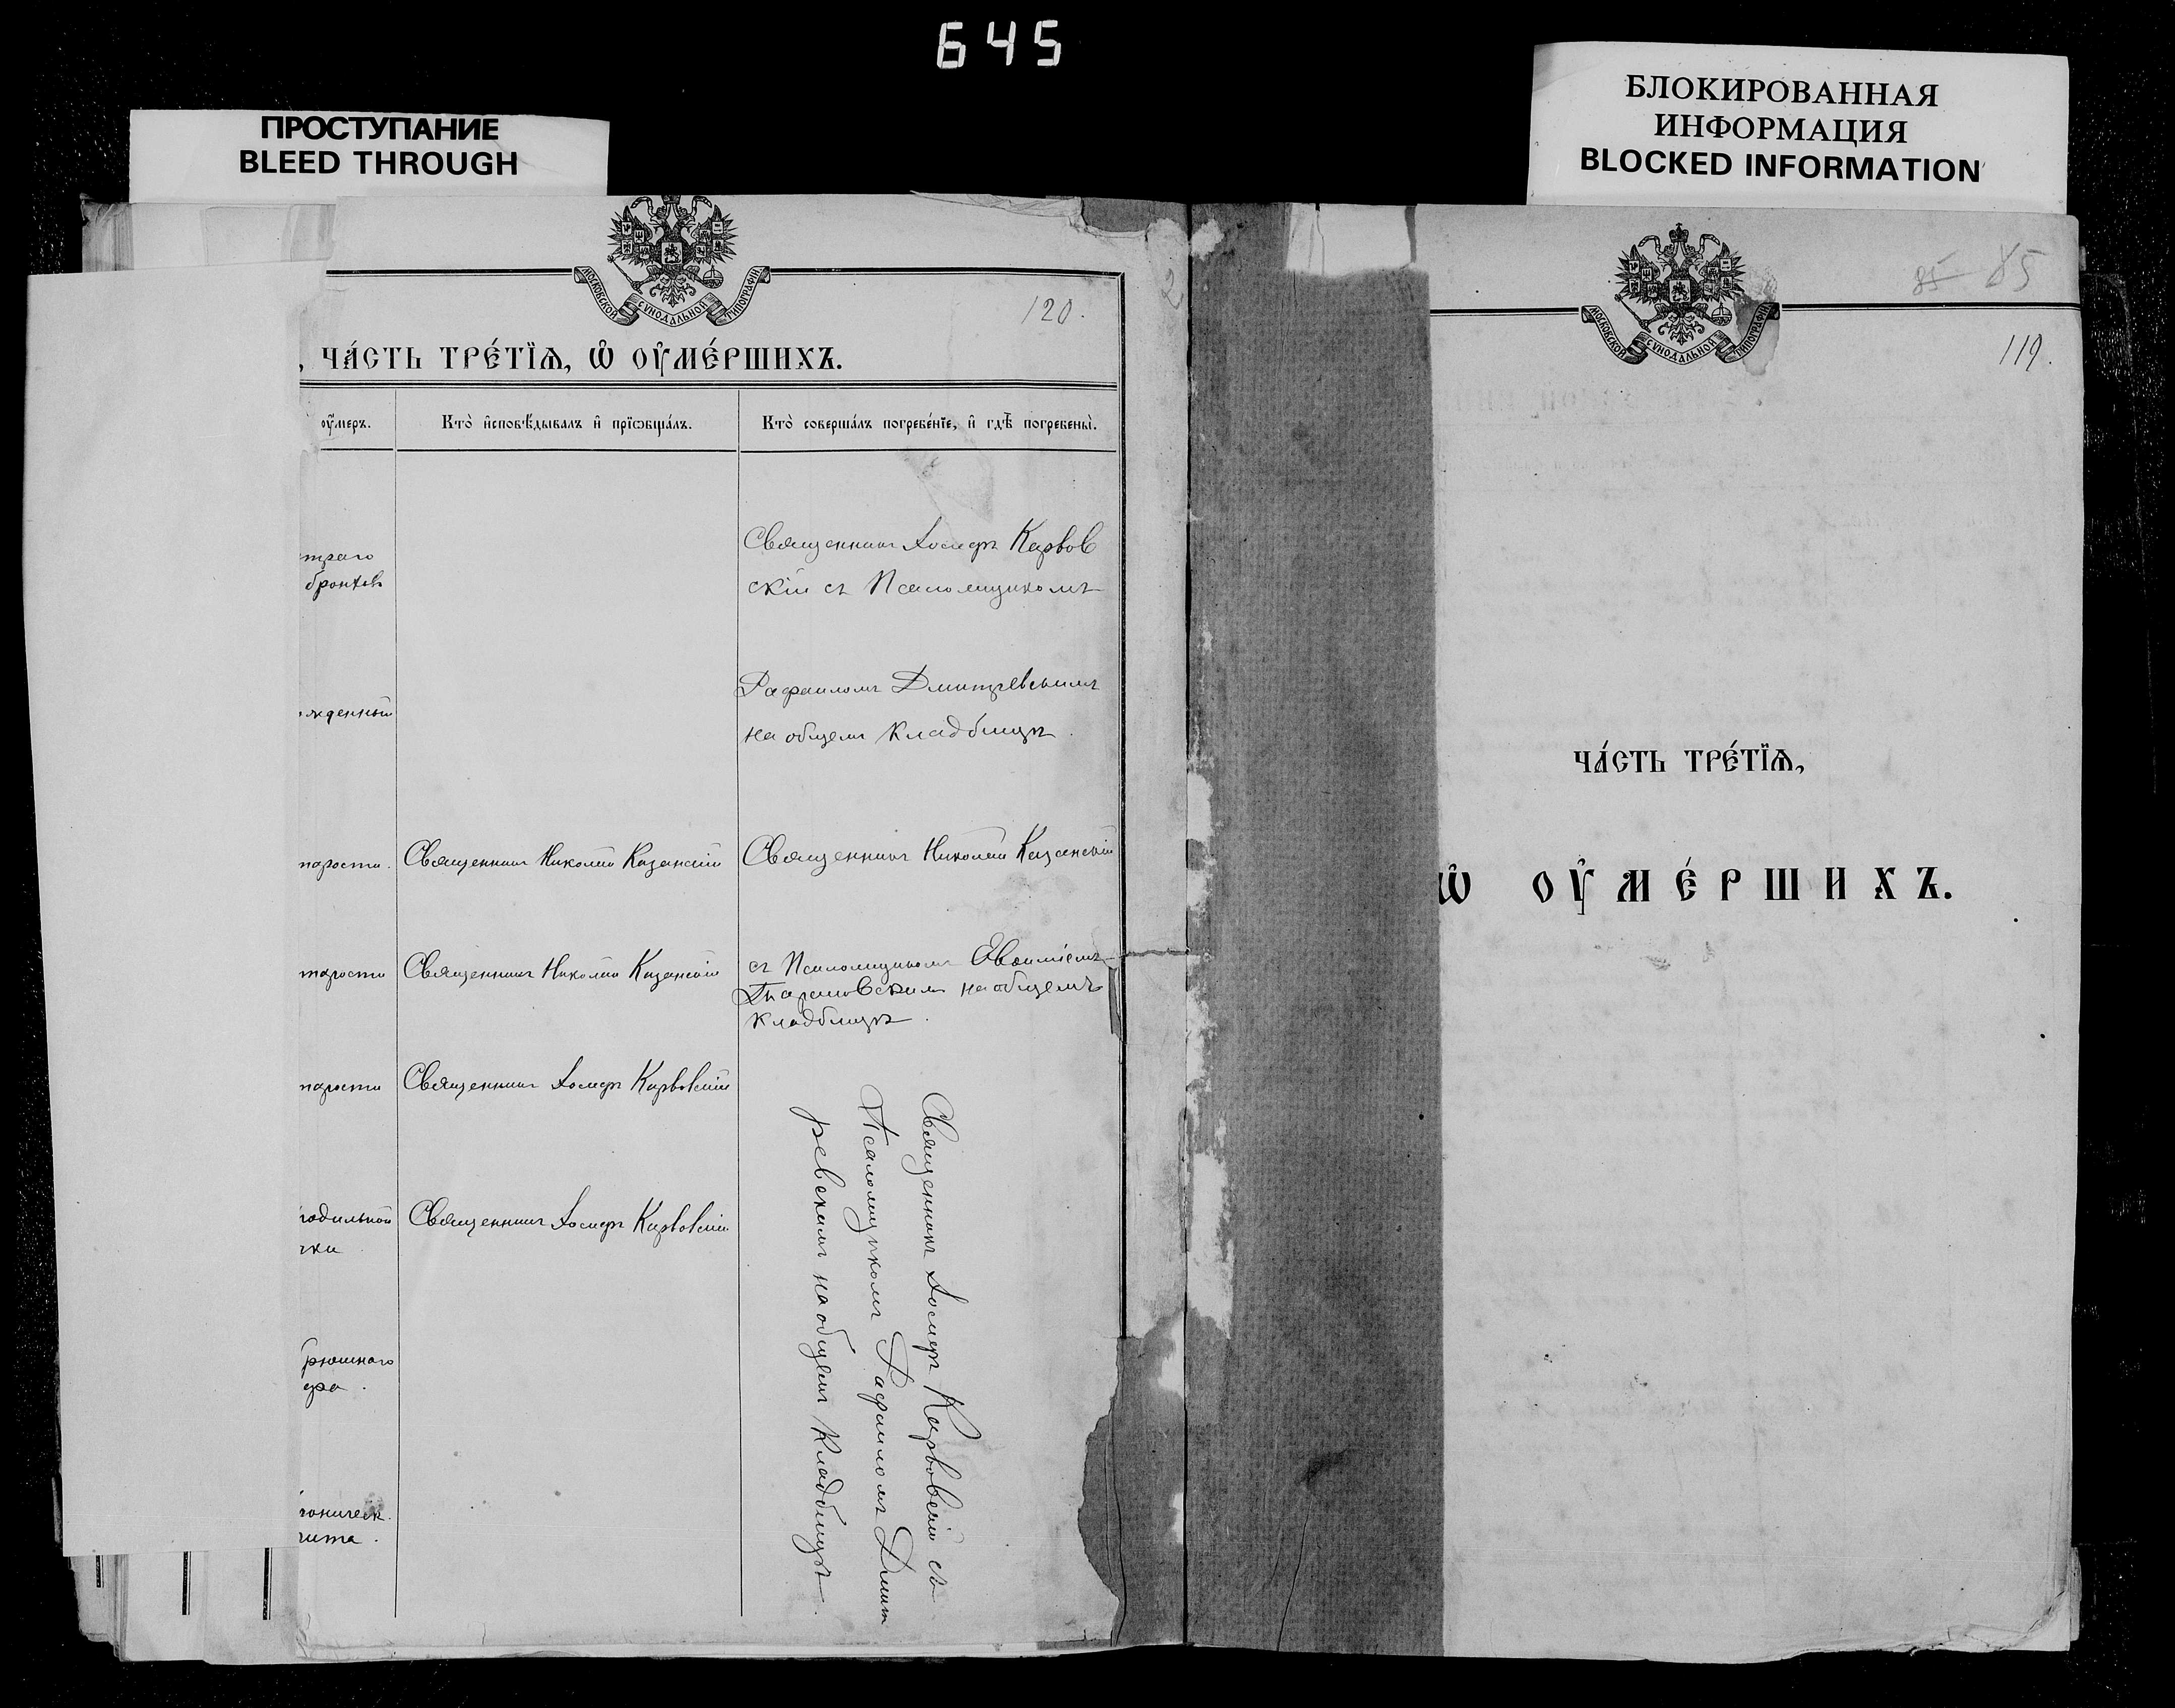 645
ПРОСТУПАНИЕ
BLEED THROUGH
БЛОКИРОВАННАЯ
ИНФОРМАЦИЯ
BLOCKED INFORMATION
МОСКОВСКОЙ СѴНОДАЛЬНОЙ ТИПОГРАФІИ
120.
, ЧА́СТЬ ТРЕ́ТЇѦ, Ѡ҆ ОУ҆МЕ́РШИХЪ.
оу҆́меръ.
Кто̀ и҆сповѣ́дывалъ и҆ прїѡбща́лъ.
Кто̀ соверша́лъ погребе́нїе, и҆ гдѣ̀ погребены̀.
Священникъ Іосифъ Карвов
скій съ Псаломщикомъ
бронхов
Рафаиломъ Дмитревскимъ
на общемъ кладбищѣ.
жденный
тарости.
Священникъ Николай Казанскій
Священникъ Николай Казанскій
тарости
Священникъ Николай Казанскій
съ Псаломщикомъ Евѳиміемъ
Тарановскимъ на общемъ
кладбищѣ.
тарости
Священникъ Іосифъ Карвовскій
Священникъ Іосифъ Карвовскій съ
Псаломщикомъ Рафаиломъ Дмит
ревскимъ на общемъ кладбищѣ.
родильной
чки
Священникъ Іосифъ Карвовскій
брюшного
фа.
роническ.
рита.
МОСКОВСКОЙ СѴНОДАЛЬНОЙ ТИПОГРАФІИ
85 85
119.
ЧА́СТЬ ТРЕ́ТЇѦ,
Ѡ҆ ОУ҆МЕ́РШИХЪ.